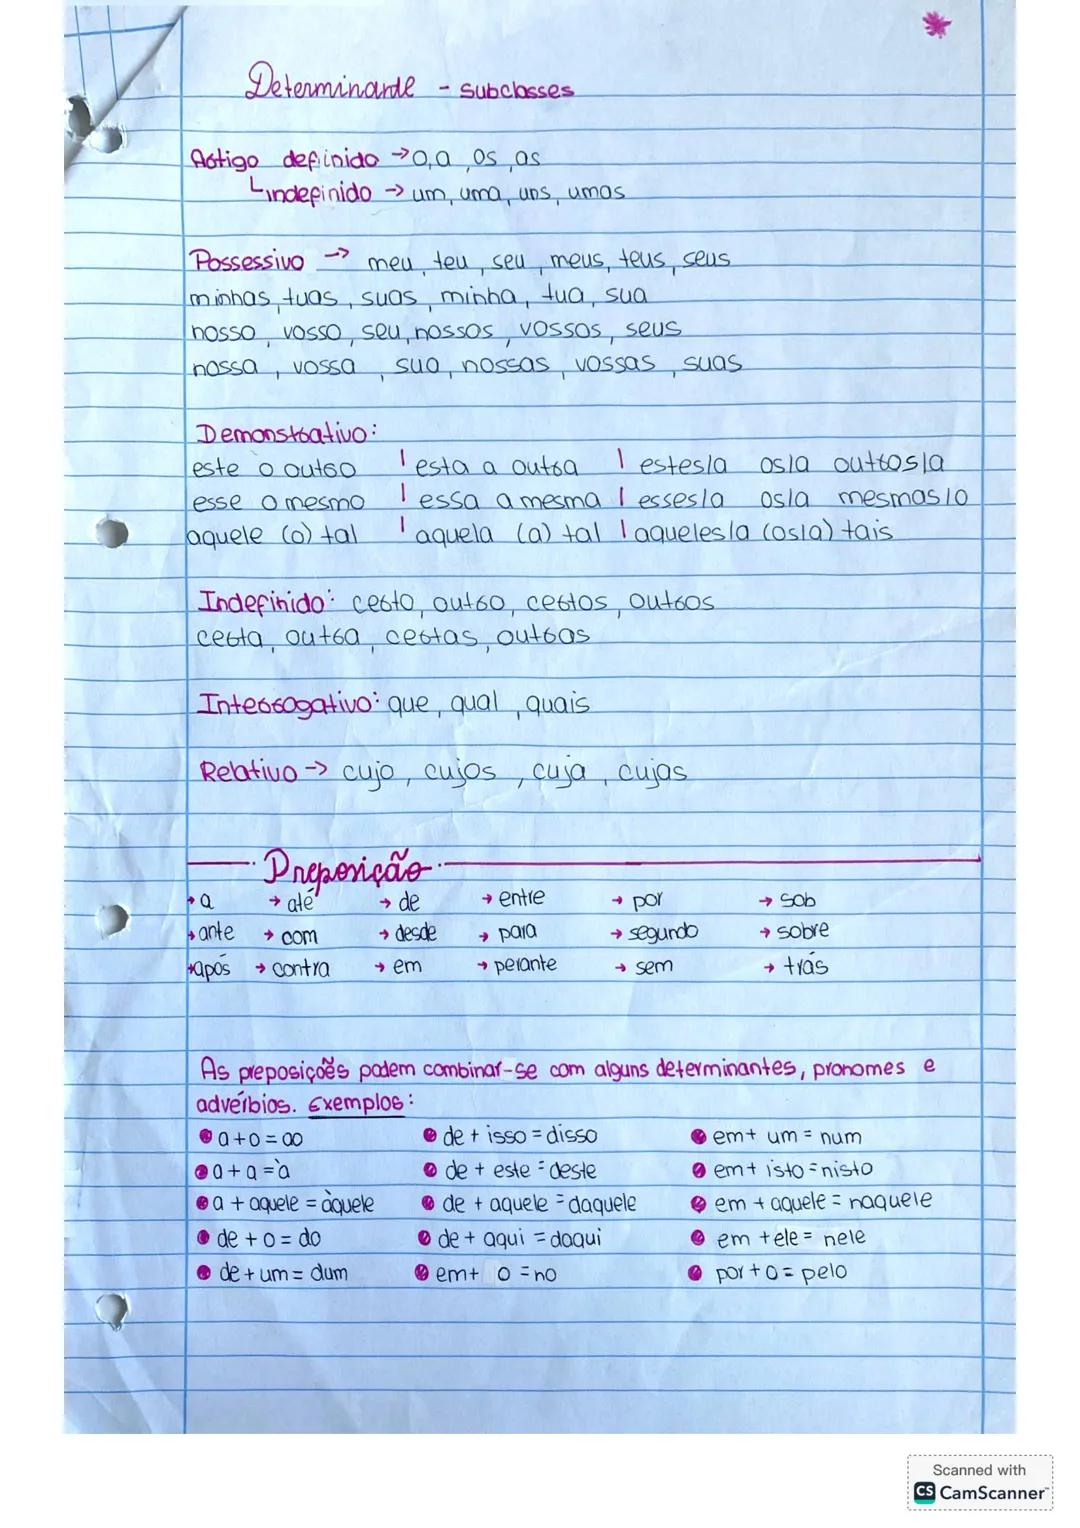 Determinante - subclasses
Artigo definido → o, a, os, as
indefinido → um, uma, uns, umas
Possessivo → meu, teu, seu, meus, teus, seus
minhas, tuas, suas, minha, tua, sua
nosso, vosso, seu, nossos, vossos, seus
nossa, vossa, sua, nossas, vossas, suas
Demonstrativo:
este o outro | esta a outra | estes/a os/a outros/a
esse o mesmo | essa a mesma | esses/a os/a mesmas/o
aquele (o) tal | aquela (a) tal | aqueles/a (os/a) tais
Indefinido: certo, outro, certos, outros
certa, outra, certas, outras
Interrogativo: que, qual, quais
Relativo → cujo, cujos, cuja, cujas
Preposição
→ a → até → de → entre → por → sob
→ ante → com → desde → para → segundo → sobre
→ após → contra → em → perante → sem → trás
As preposições podem combinar-se com alguns determinantes, pronomes e
advérbios. Exemplos:
a + o = ao de + isso = disso em + um = num
a + a = à de + este = deste em + isto = nisto
a + aquele = àquele de + aquele = daquele em + aquele = naquele
de + o = do de + aqui = daqui em + ele = nele
de + um = dum em + o = no por + o = pelo
Scanned with
CS CamScanner™